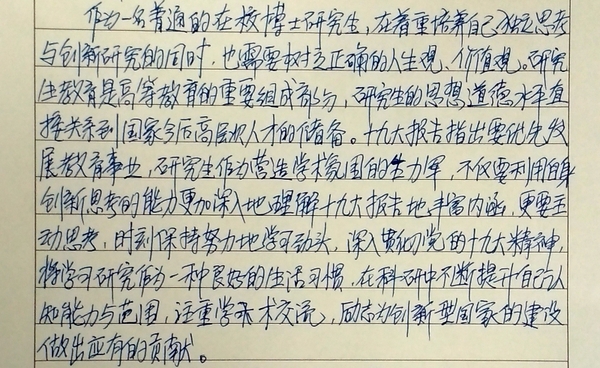 作为一名普通的在校博士研究生,在着重培养自己独立思考
与创新研究的同时,也需要树立正确的人生观、价值观。研究
生教育是高等教育的重要组成部分,研究生的思想道德水平直
接关系到国家今后高层次人才的储备。十九大报告指出要优先发
展教育事业,研究生作为营造学术氛围的生力军,不仅要利用自身
创新思考的能力更加深入地理解十九大报告地丰富内涵,更要主
动思考,时刻保持努力地学习劲头,深入贯彻党的十九大精神,
将学习研究作为一种良好的生活习惯,在科研中不断提升自己认
知能力与范围,注重学术交流,励志为创新型国家的建设
做出应有的贡献。